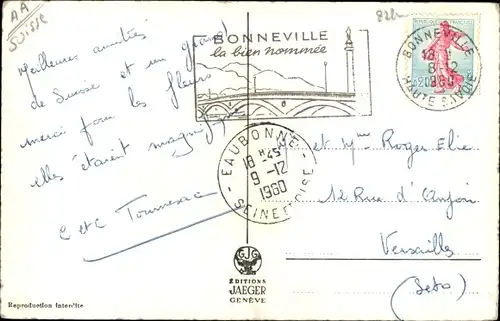 AA
Suisse
Meilleures amitiés
de Suisse et un grand
merci pour les fleurs
elles étaient magnif
BONNEVILLE
la bien nommée
REPUBLIQUE FRANÇAISE
BONNEVILLE
8-12
HAUTE SAVOIE
EAUBONNE
18 H 45
9-12
1960
SEINE ET OISE
et Mme Roger Elie
12 Rue d'Anjou
Versailles
(Seto)
ÉDITIONS
JAEGER
GENÈVE
Reproduction interdite